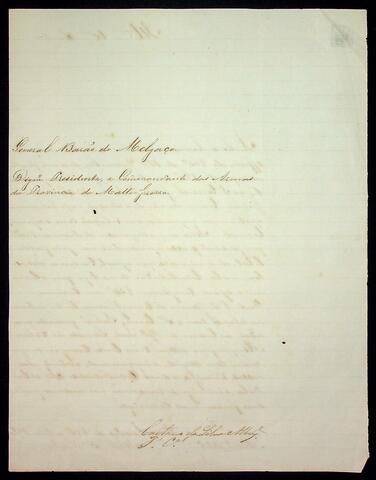 General Barão de Melgaço
Digno Presidente, e Commandante das Armas
da Provincia de Matto Grosso
Caetano da Silva